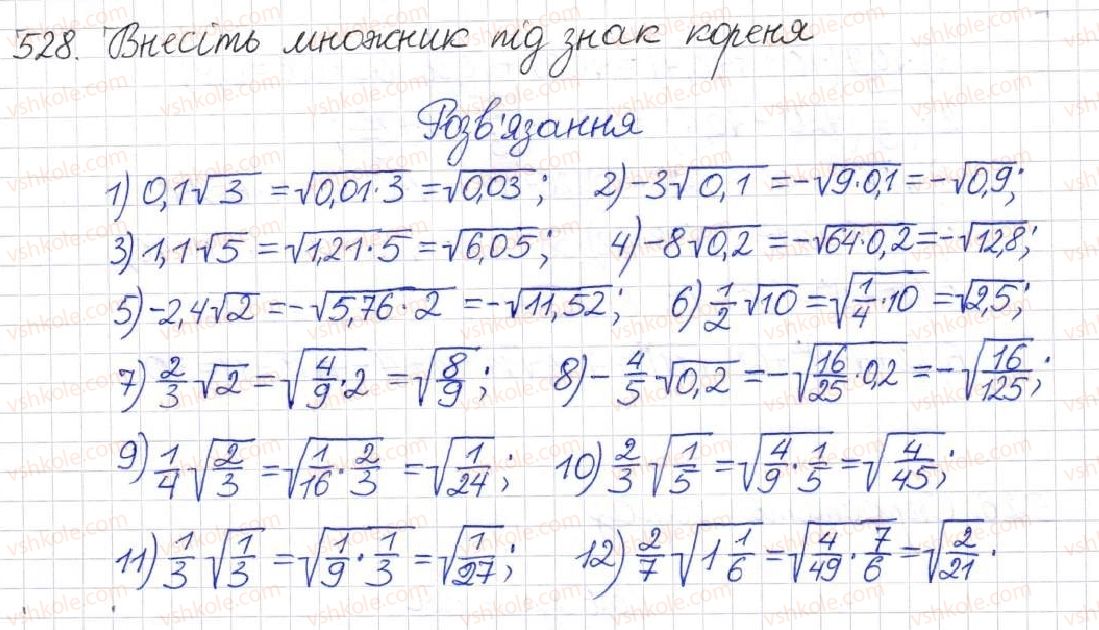 528. Внесіть множник під знак кореня
Розв'язання
1) 0,1√3 = √(0,01·3) = √0,03; 2) -3√0,1 = -√(9·0,1) = -√0,9;
3) 1,1√5 = √(1,21·5) = √6,05; 4) -8√0,2 = -√(64·0,2) = -√12,8;
5) -2,4√2 = -√(5,76·2) = -√11,52; 6) 1/2 √10 = √(1/4·10) = √2,5;
7) 2/3 √2 = √(4/9·2) = √(8/9); 8) -4/5 √0,2 = -√(16/25·0,2) = -√(16/125);
9) 1/4 √(2/3) = √(1/16·2/3) = √(1/24); 10) 2/3 √(1/5) = √(4/9·1/5) = √(4/45);
11) 1/3 √(1/3) = √(1/9·1/3) = √(1/27); 12) 2/7 √(1 1/6) = √(4/49·7/6) = √(2/21).
vshkole.com